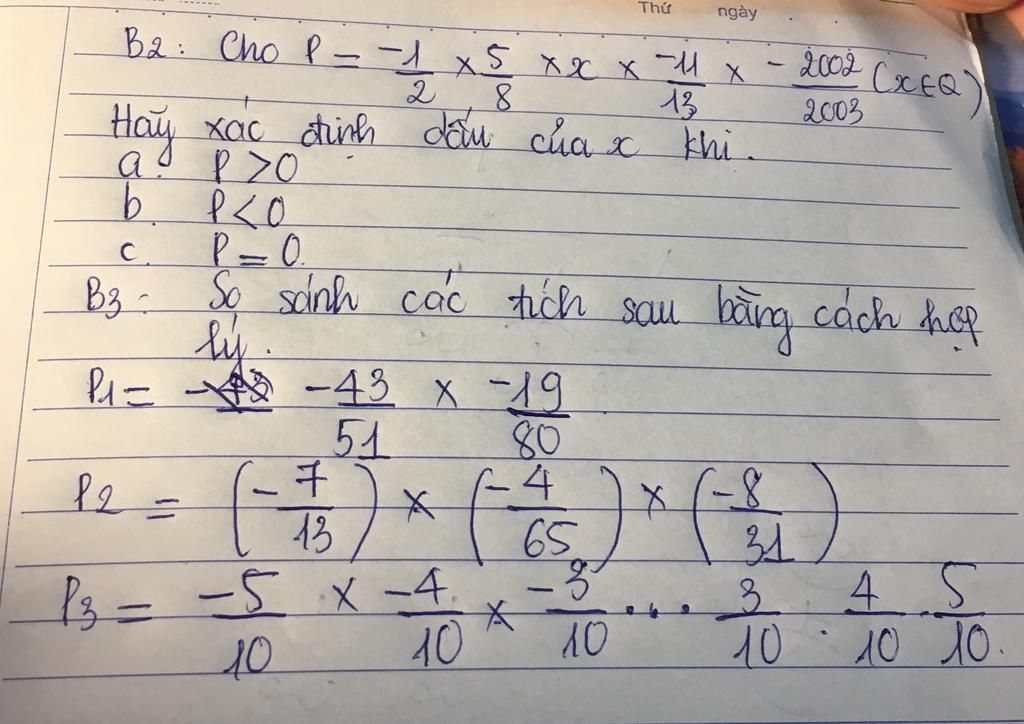 Thứ ngày
B2: Cho P = -1/2 × 5/8 × x × -11/13 × -2002/2003 (x∈Q)
Hãy xác định dấu của x khi.
a. P > 0
b. P < 0
c. P = 0.
B3: So sánh các tích sau bằng cách hợp
lý.
P1 = -43/51 × -19/80
P2 = (-7/13) × (-4/65) × (-8/31)
P3 = -5/10 × -4/10 × -3/10 ... 3/10 . 4/10 . 5/10.